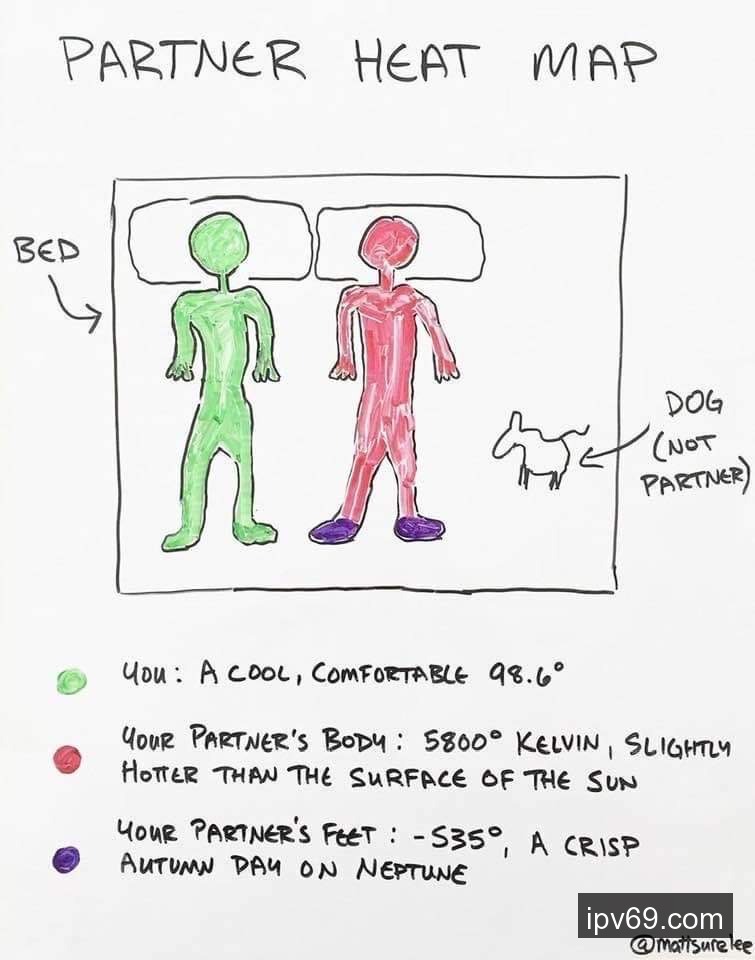 PARTNER HEAT MAP
BED
DOG
(NOT
PARTNER)
YOU: A COOL, COMFORTABLE 98.6°
YOUR PARTNER'S BODY: 5800° KELVIN, SLIGHTLY
HOTTER THAN THE SURFACE OF THE SUN
YOUR PARTNER'S FEET: -535°, A CRISP
AUTUMN DAY ON NEPTUNE
ipv69.com
@mattsurelee